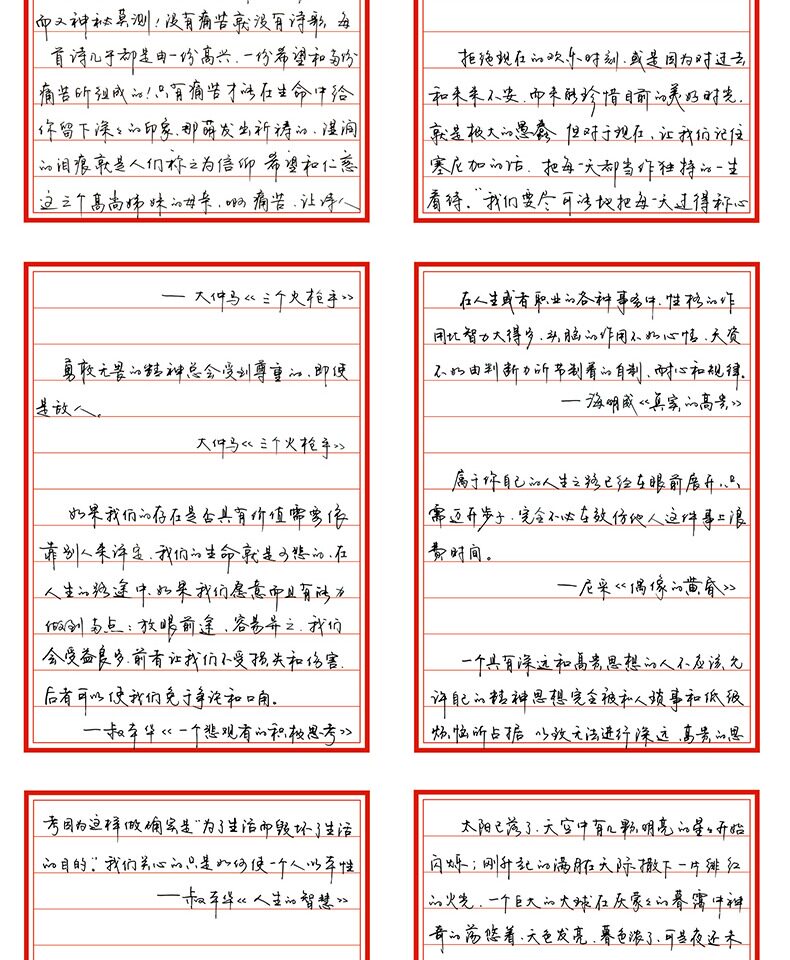 而又神秘莫测！没有痛苦就没有诗歌，每
首诗几乎都是由一份高兴、一份希望和两份
痛苦所组成的！只有痛苦才能在生命中给
你留下深深的印象，那萌发出祈祷的、湿润
的泪痕就是人们称之为信仰 希望和仁慈
这三个高尚姊妹的母亲，啊痛苦，让诗人
拒绝现在的欢乐时刻，或是因为对过去
和未来不安，而未能珍惜目前的美好时光，
就是极大的愚蠢 但对于现在，让我们记住
塞尼加的话，把每一天都当作独特的一生
看待。“我们要尽可能地把每一天过得称心
— 大仲马《三个火枪手》
勇敢无畏的精神总会受到尊重的，即使
是敌人。
大仲马《三个火枪手》
如果我们的存在是否具有价值需要依
靠别人来评定，我们的生命就是可悲的，在
人生的路途中，如果我们愿意而且有能力
做到两点：放眼前途，容纳异己，我们
会受益良多，前者让我们不受损失和伤害，
后者可以使我们免于争论和口角。
—叔本华《一个悲观者的积极思考》
在人生或者职业的各种事务中，性格的作
用比智力大得多，头脑的作用不如心情，天资
不如由判断力所节制着的自制，耐心和规律。
—海明威《真实的高贵》
属于你自己的人生之路已经在眼前展开，只
需迈开步子，完全不必在效仿他人这件事上浪
费时间。
—尼采《偶像的黄昏》
一个具有深远和高贵思想的人不应该允
许自己的精神思想完全被私人琐事和低级
烦恼所占据 以致无法进行深远、高贵的思
考因为这样做确实是“为了生活而毁坏了生活
的目的。”我们关心的只是如何使一个人以本性
—叔本华《人生的智慧》
太阳已落了，天空中有几颗明亮的星星开始
闪烁；刚升起的满月在天际撒下一片绯红
的火光，一个巨大的火球在灰蒙蒙的暮霭中神
奇的荡悠着，天色发亮，暮色浓了，可是夜还未